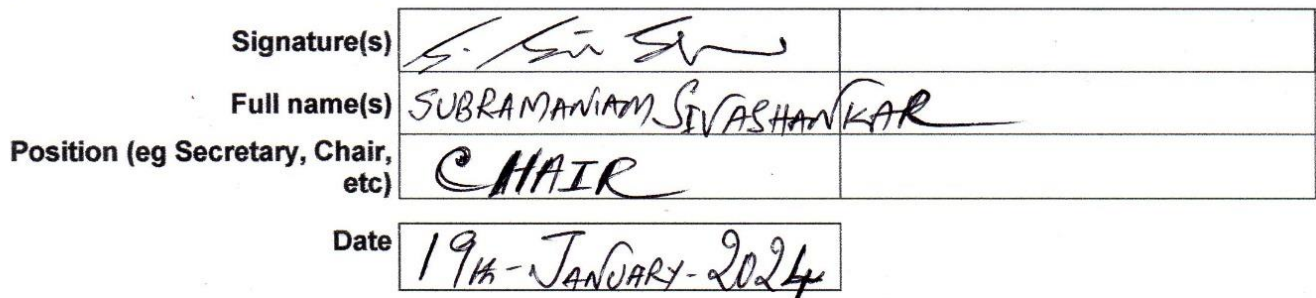 Signature(s)
Full name(s) SUBRAMANIAM SIVASHANKAR
Position (eg Secretary, Chair,
etc) CHAIR
Date 19th-JANUARY-2024